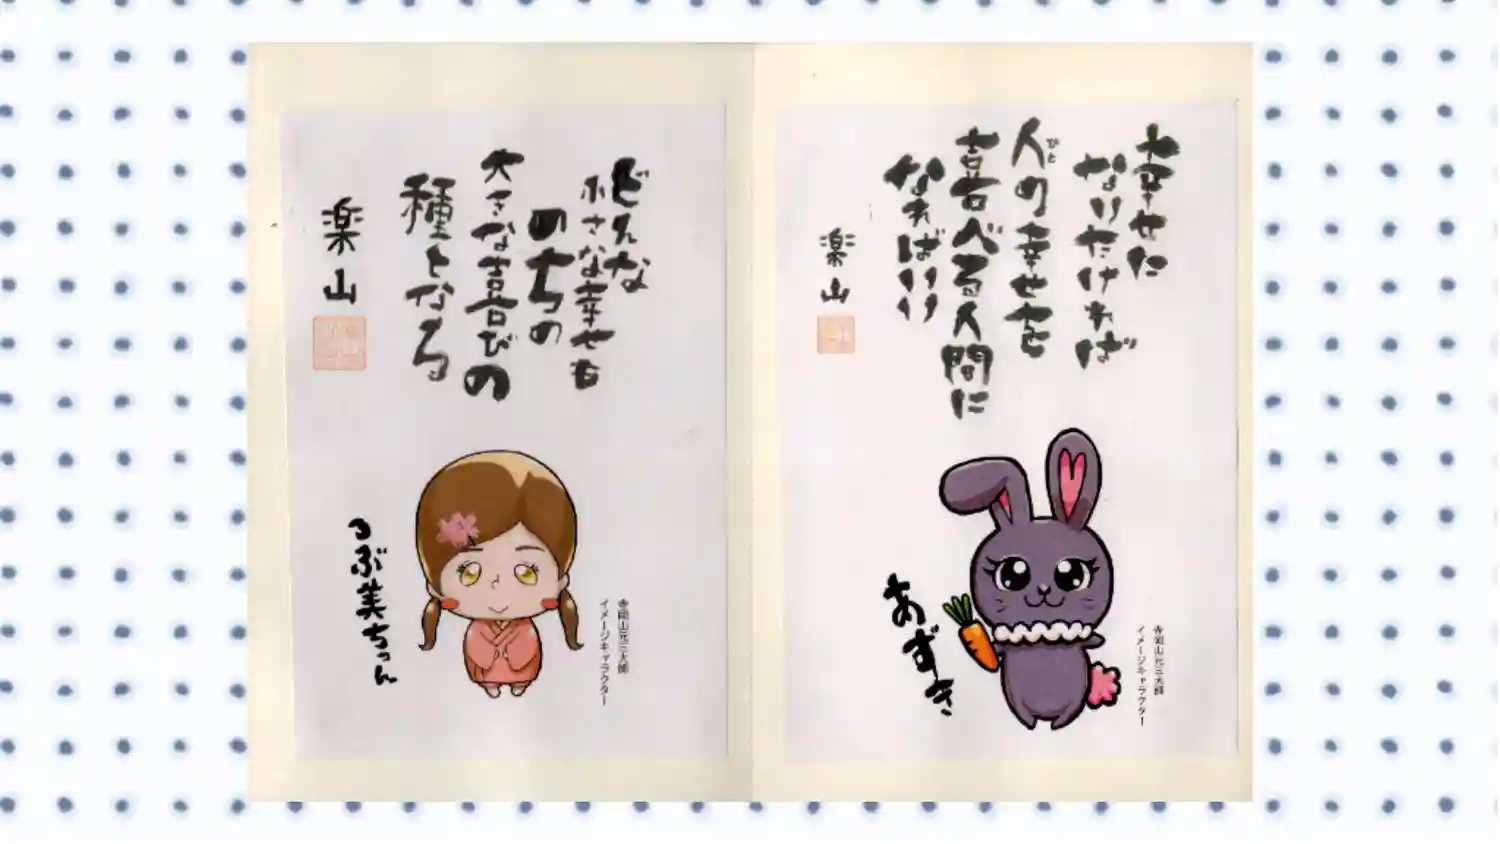 幸せに
なりたければ
人の幸せを
ひと
喜べる人間に
なればいい
楽山
寺岡山元三大師
イメージキャラクター
あずき
どんな
小さな幸せも
のちの
大きな喜びの
種となる
楽山
寺岡山元三大師
イメージキャラクター
るぶ美ちゃん